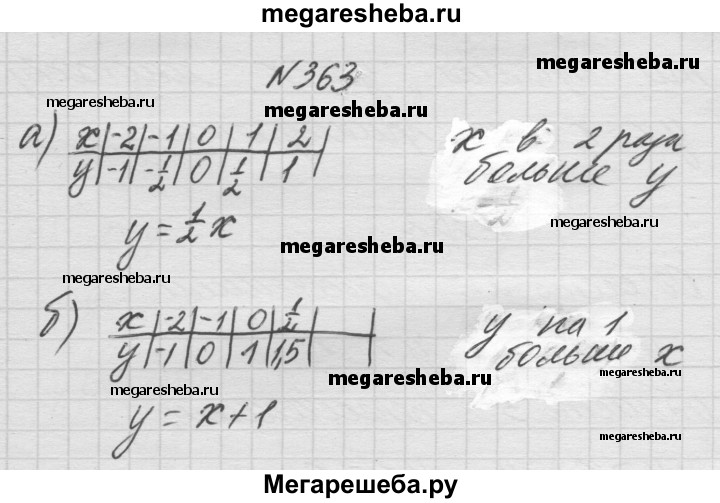 megaresheba.ru
N363
megaresheba.ru
megaresheba.ru
megaresheba.ru
а) x | -2 | -1 | 0 | 1 | 2 |
y | -1 | -1/2 | 0 | 1/2 | 1 |
x в 2 раза
больше y
y = 1/2 x
megaresheba.ru
megaresheba.ru
megaresheba.ru
б) x | -2 | -1 | 0 | 1/2 | |
y | -1 | 0 | 1 | 1,5 | |
y на 1
больше x
megaresheba.ru
megaresheba.ru
y = x + 1
megaresheba.ru
Мегарешеба.ру